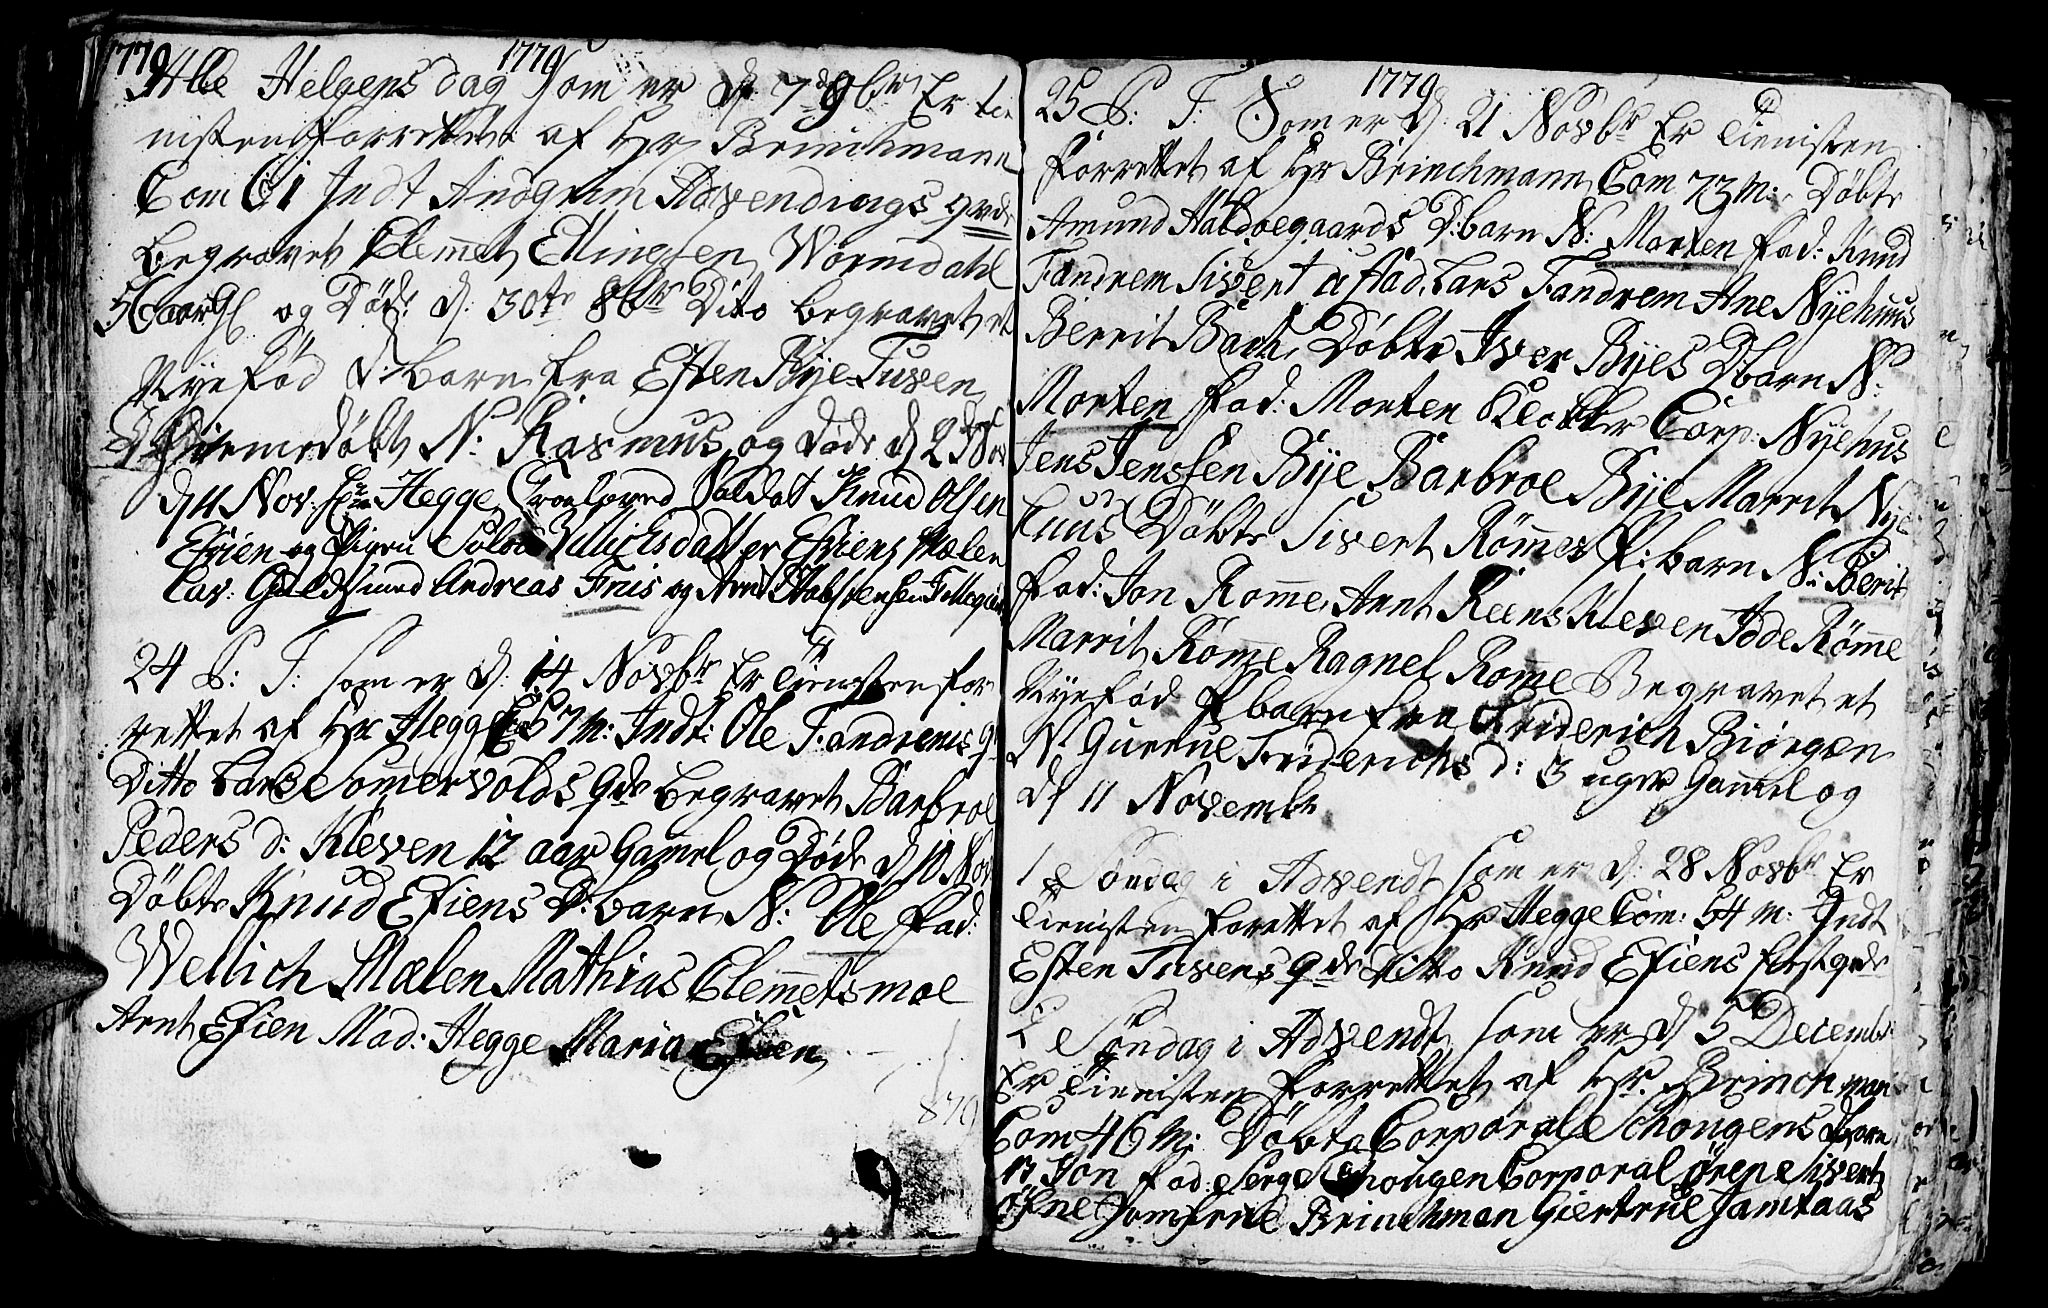 1779 1779
Alle Helgens dag som er d: 7de 9br Er tie
nisten forrettet af Hr Brinchmann
Com 61 Indt Andgrim Advendings qvde
begravet Clemet Ellingsen Wormdahl
56 aar Gl og Døde d: 30te 8br Dito begravet et
Nyefød d: barn fra Esten Bye Tuven
Hiemedøbt N: Rasmus og døde d 2 Nov
d 4 Nov: Hegge Troeloved Soldat Knud Olsen
Efsien og Pigen Solvie Villichsdatter Efsiens Mælen
Cav: Guldsmed Andreas Friis og Arnt
24 S: T: som er d: 14 Novbr Er Tienisten for
rettet af Hr Hegge Com 57 m: Indt: Ole Fandrems q
Ditto Lars Somervolds qde begravet Barbroe
Peders d: Kleven 12 aar Gamel og Døde d 10 Nov
Døbte Knud Efsiens D: barn N: Ole fad:
Wellich Mælen Mathias Clemetsmoe
Arnt Efsien Mad: Hegge Maria Efsien
1779
25 S: T: Som er d: 21 Novbr Er Tienisten
forrettet af Hr Brinchmann Com 73 m: Døbte
Amund Haldoegaards D: barn N: Morten fad: Knud
Fandrem Sivert Lars Fandrem Ane Nyehuus
Berrit Døbte Iver Byes D barn N:
Morten fad: Morten Klokker Corp: Nyehus
Jens Jenssen Bye Barbroe Bye Marrit Nye
huus Døbte Sivert Rømmes P: barn N: Berit
fad: Jon Romme, Arnt Reens Kleven Rømme
Marrit Rømme Ragnel Romme Begravet et
Nyefød P barn fra Friderich Biørgen
N: Gurrue Friderichs d: 3 uger Gamel og
d 11 Novembr
1 Søndag i Advendt som er d: 28 Novbr Er
Tienisten forettet af Hr Hegge Com: 54 m: Indt
Esten Tuvens qde Ditto Knud Efsiens fest qvde
2 Søndag i Advendt som er d 5 Decembr
Er Tienisten forrettet af Hr. Brinchman
Com 46 m: Døbt Corporal Schougens d barn
N Jon fad: Serge Schougen Corporal Øren Sivert
Øfne Jomfrue Brinchman Giertrue Jamtaas